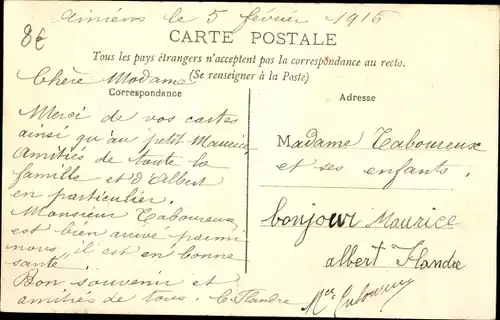 8€
Amiens le 5 février 1916
CARTE POSTALE
Tous les pays étrangers n'acceptent pas la correspondance au recto.
(Se renseigner à la Poste)
Chère Madame
Correspondance
Merci de vos cartes
ainsi qu'au petit Maurice
Amitiés de toute la
famille et d'Albert
en particulier.
Monsieur Taboureux
est bien arrivé parmi
nous, il est en bonne
santé
Bon souvenir et
amitiés de tous. C. Flandre
Adresse
Madame Taboureux
et ses enfants.
bonjour Maurice
albert Flandre